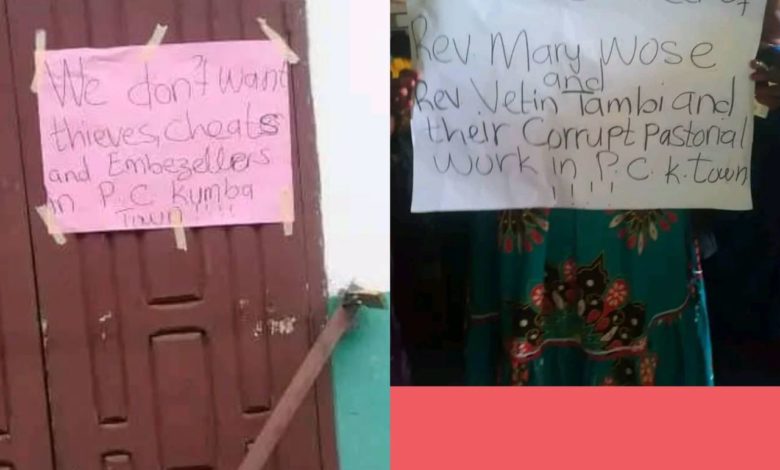 We don't want
thieves, cheats
and Embezellers
in P.C Kumba
Town!!!!
Rev Mary Wose
and
Rev. Vetin Tambi and
their Corrupt Pastorial
work in P.C. K. Town
!!!!